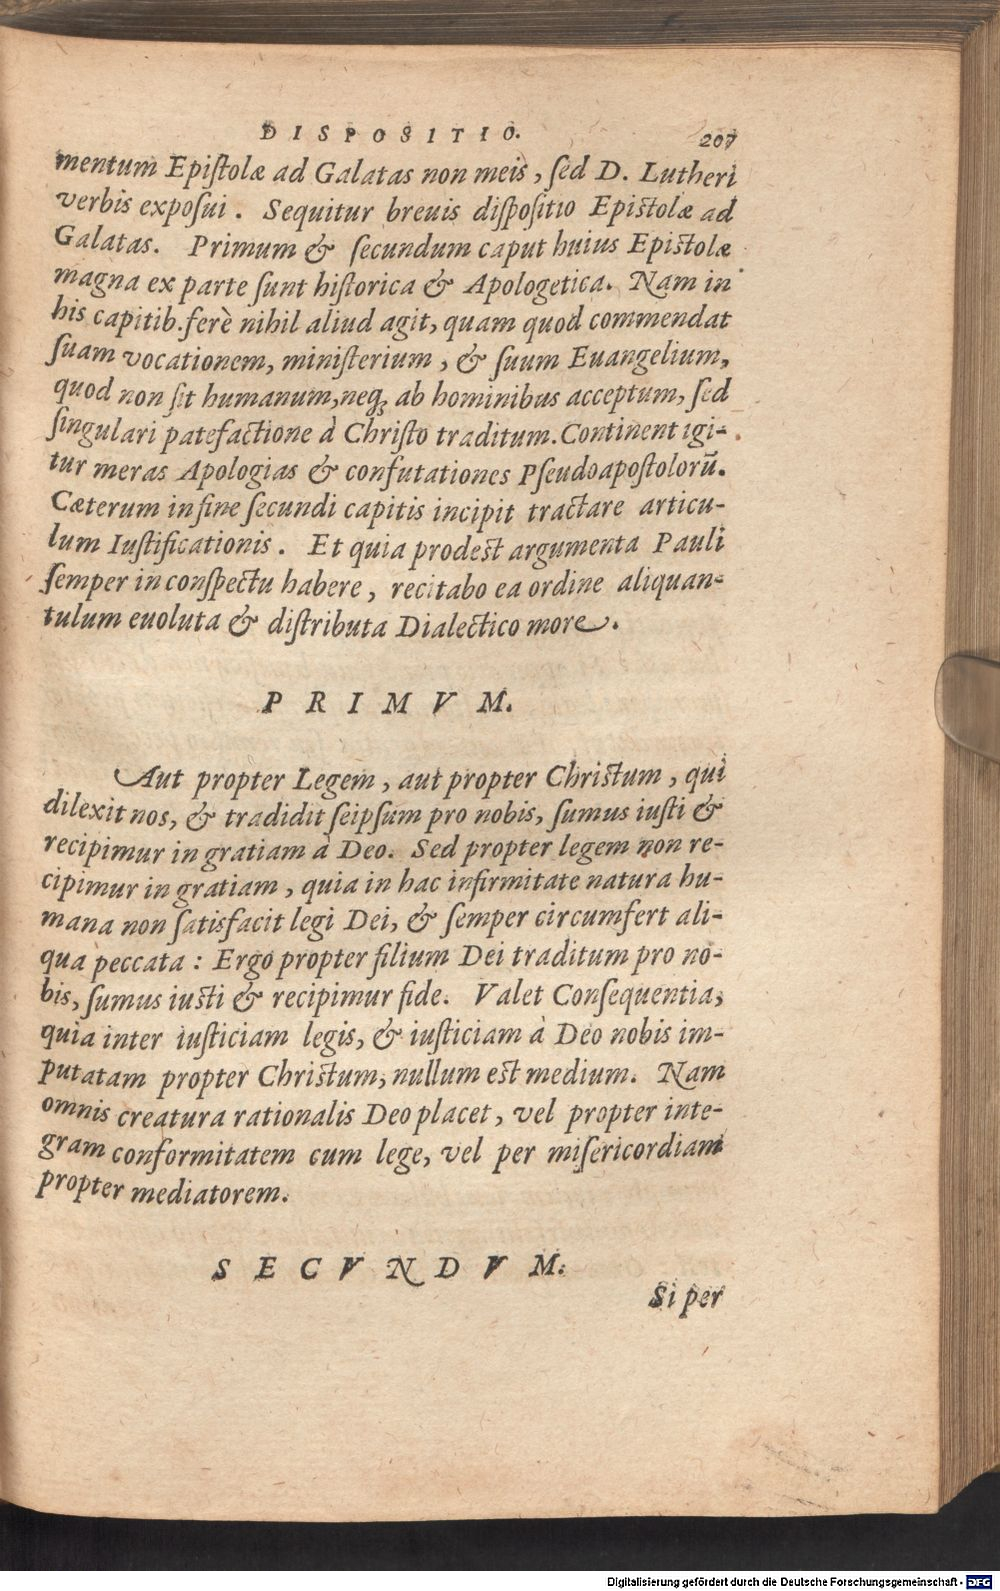 DISPOSITIO. 207
mentum Epiſtolæ ad Galatas non meis, ſed D. Lutheri
verbis expoſui. Sequitur breuis diſpoſitio Epistolæ ad
Galatas. Primum & ſecundum caput huius Epistolæ
magna ex parte ſunt hiſtorica & Apologetica. Nam in
his capitib. ferè nihil aliud agit, quam quod commendat
ſuam vocationem, miniſterium, & ſuum Euangelium,
quod non ſit humanum, neqꝫ ab hominibus acceptum, ſed
ſingulari patefactione à Chriſto traditum. Continent igi-
tur meras Apologias & confutationes Pſeudoapoſtolorū.
Cæterum in fine ſecundi capitis incipit tractare articu-
lum Iuſtificationis. Et quia prodest argumenta Pauli
ſemper in conſpectu habere, recitabo ea ordine aliquan-
tulum euoluta & diſtributa Dialectico more.
PRIMVM.
Aut propter Legem, aut propter Christum, qui
dilexit nos, & tradidit ſeipſum pro nobis, ſumus iuſti &
recipimur in gratiam à Deo. Sed propter legem non re-
cipimur in gratiam, quia in hac infirmitate natura hu-
mana non ſatisfacit legi Dei, & ſemper circumfert ali-
qua peccata: Ergo propter filium Dei traditum pro no-
bis, ſumus iusti & recipimur fide. Valet Conſequentia,
quia inter iuſticiam legis, & iuſticiam à Deo nobis im-
putatam propter Christum, nullum est medium. Nam
omnis creatura rationalis Deo placet, vel propter inte-
gram conformitatem cum lege, vel per miſericordiam
propter mediatorem.
SECVNDVM.
Si per
Digitalisierung gefördert durch die Deutsche Forschungsgemeinschaft - DFG